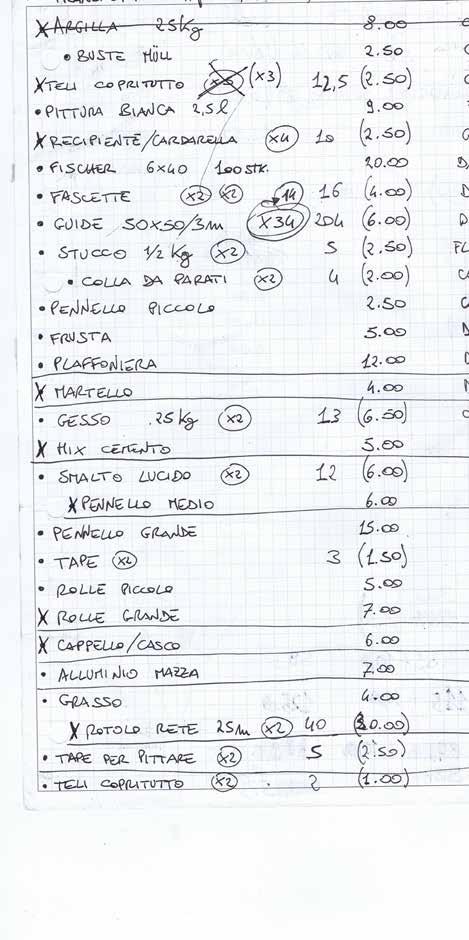 X ARGILLA 25Kg 8.00
• BUSTE MÜLL 2.50
X TELI COPRITUTTO (x3) 12,5 (2.50)
• PITTURA BIANCA 2,5l 9.00
X RECIPIENTE/CARDARELLA x4 10 (2.50)
• FISCHER 6x40 100STK. 20.00
• FASCETTE x2 x2 14 16 (4.00)
• GUIDE 50x50/3m x34 204 (6.00)
• STUCCO 1/2 Kg x2 5 (2.50)
• COLLA DA PARATI x2 4 (2.00)
• PENNELLO PICCOLO 2.50
• FRUSTA 5.00
• PLAFFONIERA 12.00
X MARTELLO 4.00
• GESSO .25Kg x2 13 (6.50)
X MIX CEMENTO 5.00
• SMALTO LUCIDO x2 12 (6.00)
X PENNELLO MEDIO 6.00
• PENNELLO GRANDE 15.00
• TAPE x2 3 (1.50)
• ROLLE PICCOLO 5.00
X ROLLE GRANDE 7.00
X CAPPELLO/CASCO 6.00
• ALLUMINIO MAZZA 7.00
• GRASSO 4.00
X ROTOLO RETE 25m x2 40 (20.00)
• TAPE PER PITTARE x2 5 (2.50)
• TELI COPRITUTTO x2 2 (1.00)